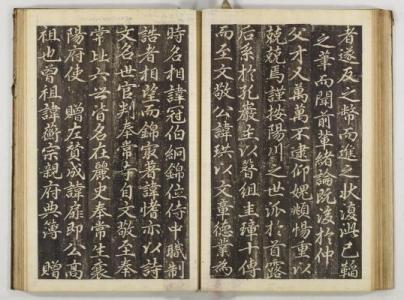 者遂反之幣而進之狀復此已軺
之筆而闡前輩緒論既後於仲
父才又萬萬不逮仰媿頫惕重以
兢兢焉謹按陽川之世派於首露
后系於孔巖以簪組圭璋十傳
而至文敬公諱珙以文章德業爲
時名相諱冠伯絅錦位侍中職制
誥者相望而錦最著諱愭亦以詩
文名世官判奉常寺自文敬至奉
常比六世皆名在麗史奉常生
陽府使 贈左贊成諱扉即公高
祖也曾祖諱蘅宗親府典簿 贈